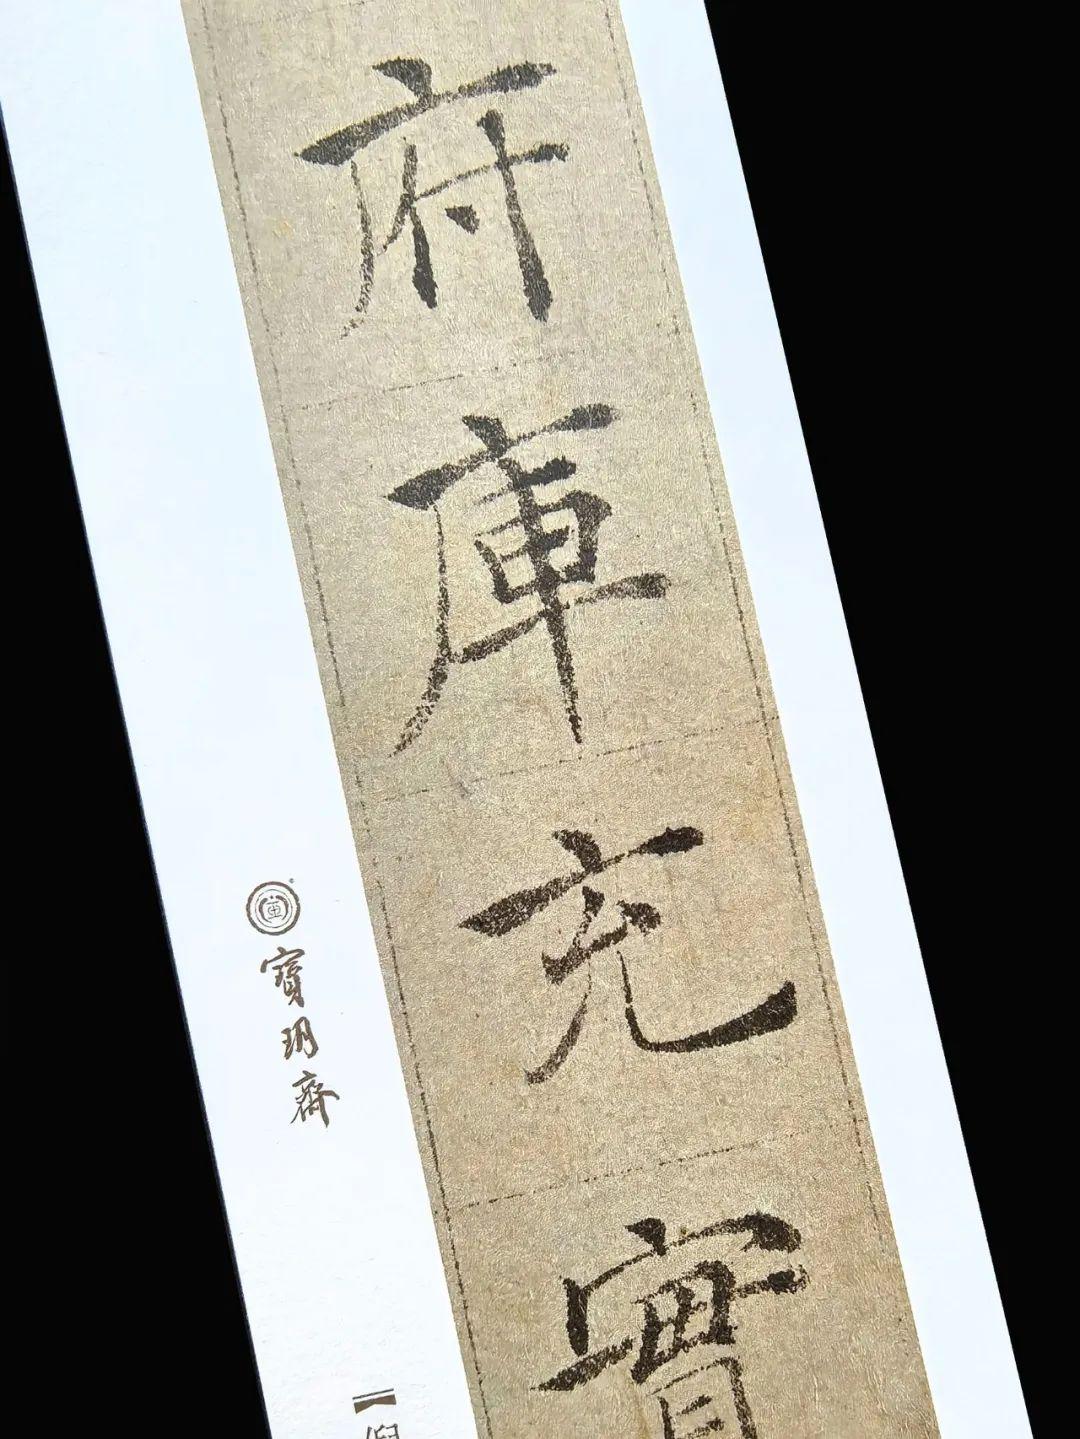 府庫充實
寶玥齋
【倪